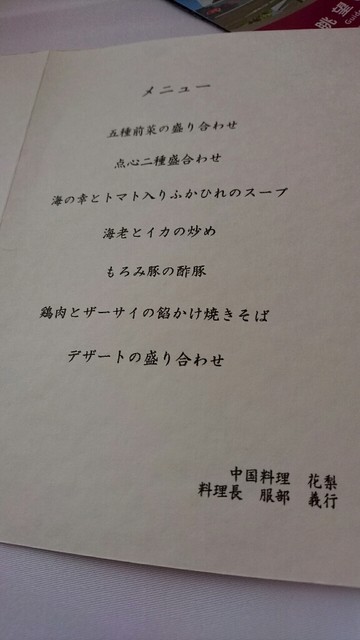 眺望
Guide
メニュー
五種前菜の盛り合わせ
点心二種盛合わせ
海の幸とトマト入りふかひれのスープ
海老とイカの炒め
もろみ豚の酢豚
鶏肉とザーサイの餡かけ焼きそば
デザートの盛り合わせ
中国料理 花梨
料理長 服部 義行